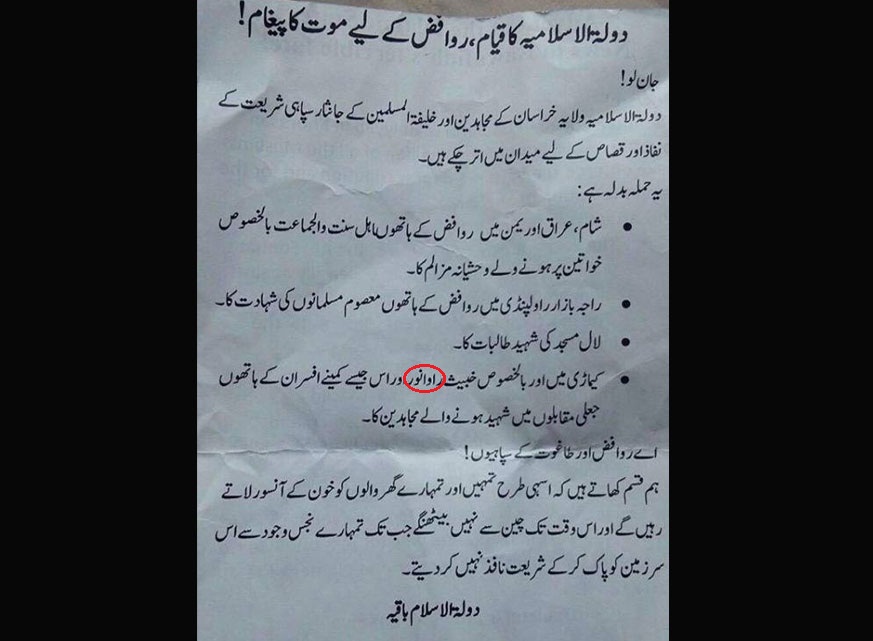 دولۃ الاسلامیہ کا قیام، روافض کے لیے موت کا پیغام!
جان لو!
دولۃ الاسلامیہ ولایہ خراسان کے مجاہدین اور خلیفۃ المسلمین کے جانثار سپاہی شریعت کے
نفاذ اور قصاص کے لیے میدان میں اتر چکے ہیں۔
یہ حملہ بدلہ ہے:
• شام، عراق اور یمن میں روافض کے ہاتھوں اہل سنت والجماعت بالخصوص
خواتین پر ہونے والے وحشیانہ مزالم کا۔
• راجہ بازار راولپنڈی میں روافض کے ہاتھوں معصوم مسلمانوں کی شہادت کا۔
• لال مسجد کی شہید طالبات کا۔
• کیماڑی میں اور بالخصوص خبیث راوانور اور اس جیسے کمینے افسران کے ہاتھوں
جعلی مقابلوں میں شہید ہونے والے مجاہدین کا۔
اے روافض اور طاغوت کے سپاہیوں!
ہم قسم کھاتے ہیں کہ اسہی طرح تمہیں اور تمہارے گھر والوں کو خون کے آنسو رلاتے
رہیں گے اور اس وقت تک چین سے نہیں بیٹھنگے جب تک تمہارے نجس وجود سے اس
سرزمین کو پاک کر کے شریعت نافذ نہیں کر دیتے۔
دولۃ الاسلام باقیہ